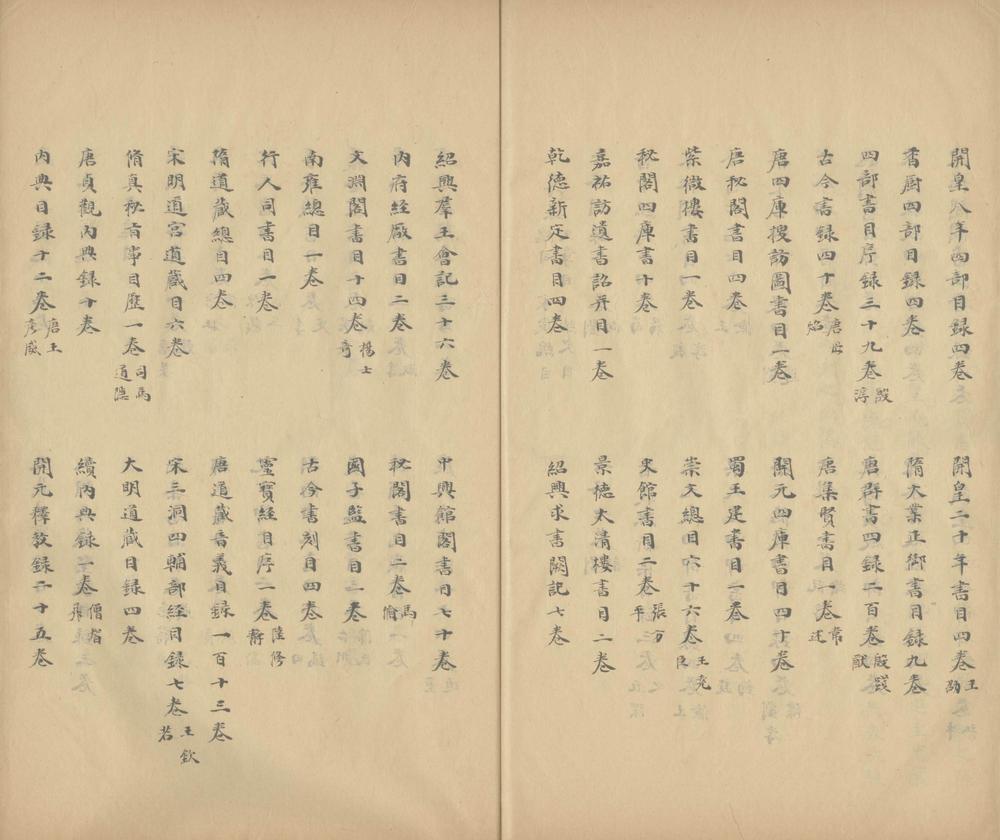 開皇八年四部目録四卷
開皇二十年書目四卷 王劭
香厨四部目録四卷
隋大業正御書目録九卷
四部書目序録三十九卷 殷淳
唐群書四録二百卷 殷踐猷
古今書録四十卷 唐毋煚
唐集賢書目一卷 韋述
唐四庫搜訪圖書目一卷
開元四庫書目四十卷
唐秘閣書目四卷
蜀王建書目一卷
紫微樓書目一卷
崇文總目六十六卷 王堯臣
秘閣四庫書十卷
史館書目二卷 張方平
嘉祐訪道書詔并目一卷
景德太清樓書目二卷
乾德新定書目四卷
紹興求書闕記七卷
紹興羣玉會記三十六卷
中興館閣書目七十卷
内府經廠書目二卷
秘閣書目二卷 馬愉
文淵閣書目十四卷 楊士奇
國子監書目一卷
南雍總目一卷
古今書刻目四卷
行人司書目一卷
靈寶經目序一卷 陸修静
隋道藏總目四卷
唐道藏音義目録一百十三卷
宋明道宮道藏目六卷
宋三洞四輔部經目録七卷 王欽若
脩真秘旨事目歷一卷 司馬道隱
大明道藏目録四卷
唐貞觀内典録十卷
續内典録一卷 僧省飛
内典目録十二卷 唐王彦威
開元釋教録二十五卷